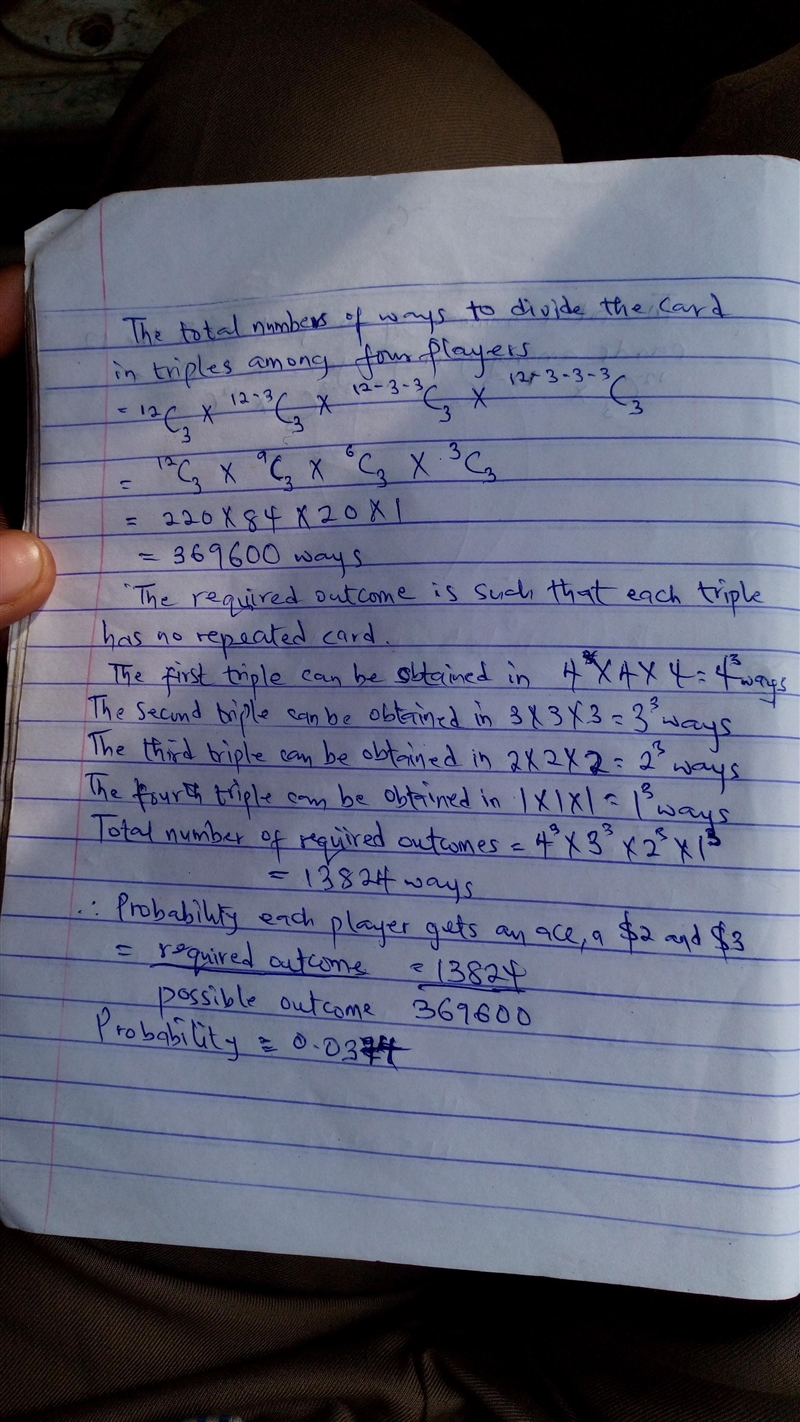 The total numbers of ways to divide the card
in triples among four players
= ¹²C₃ X ¹²⁻³C₃ X ¹²⁻³⁻³C₃ X ¹²⁻³⁻³⁻³C₃
= ¹²C₃ X ⁹C₃ X ⁶C₃ X ³C₃
= 220 X 84 X 20 X 1
= 369600 ways
The required outcome is such that each triple
has no repeated card.
The first triple can be obtained in 4 X 4 X 4 = 4³ ways
The second triple can be obtained in 3 X 3 X 3 = 3³ ways
The third triple can be obtained in 2 X 2 X 2 = 2³ ways
The fourth triple can be obtained in 1 X 1 X 1 = 1³ ways
Total number of required outcomes = 4³ X 3³ X 2³ X 1³
= 13824 ways
∴ Probability each player gets an ace, a $2 and $3
= required outcome = 13824
possible outcome 369600
Probability = 0.037